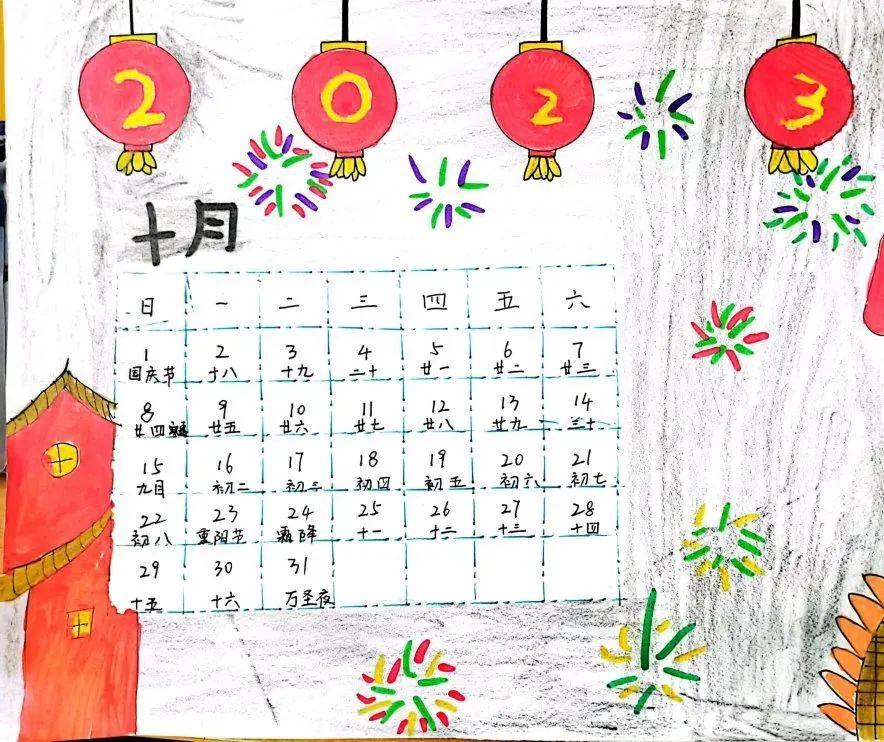 2 0 2 3
十月
日 一 二 三 四 五 六
1 2 3 4 5 6 7
国庆节 十八 十九 二十 廿一 廿二 廿三
8 9 10 11 12 13 14
廿四 廿五 廿六 廿七 廿八 廿九 三十
15 16 17 18 19 20 21
九月 初二 初三 初四 初五 初六 初七
22 23 24 25 26 27 28
初八 重阳节 霜降 十一 十二 十三 十四
29 30 31
十五 十六 万圣夜